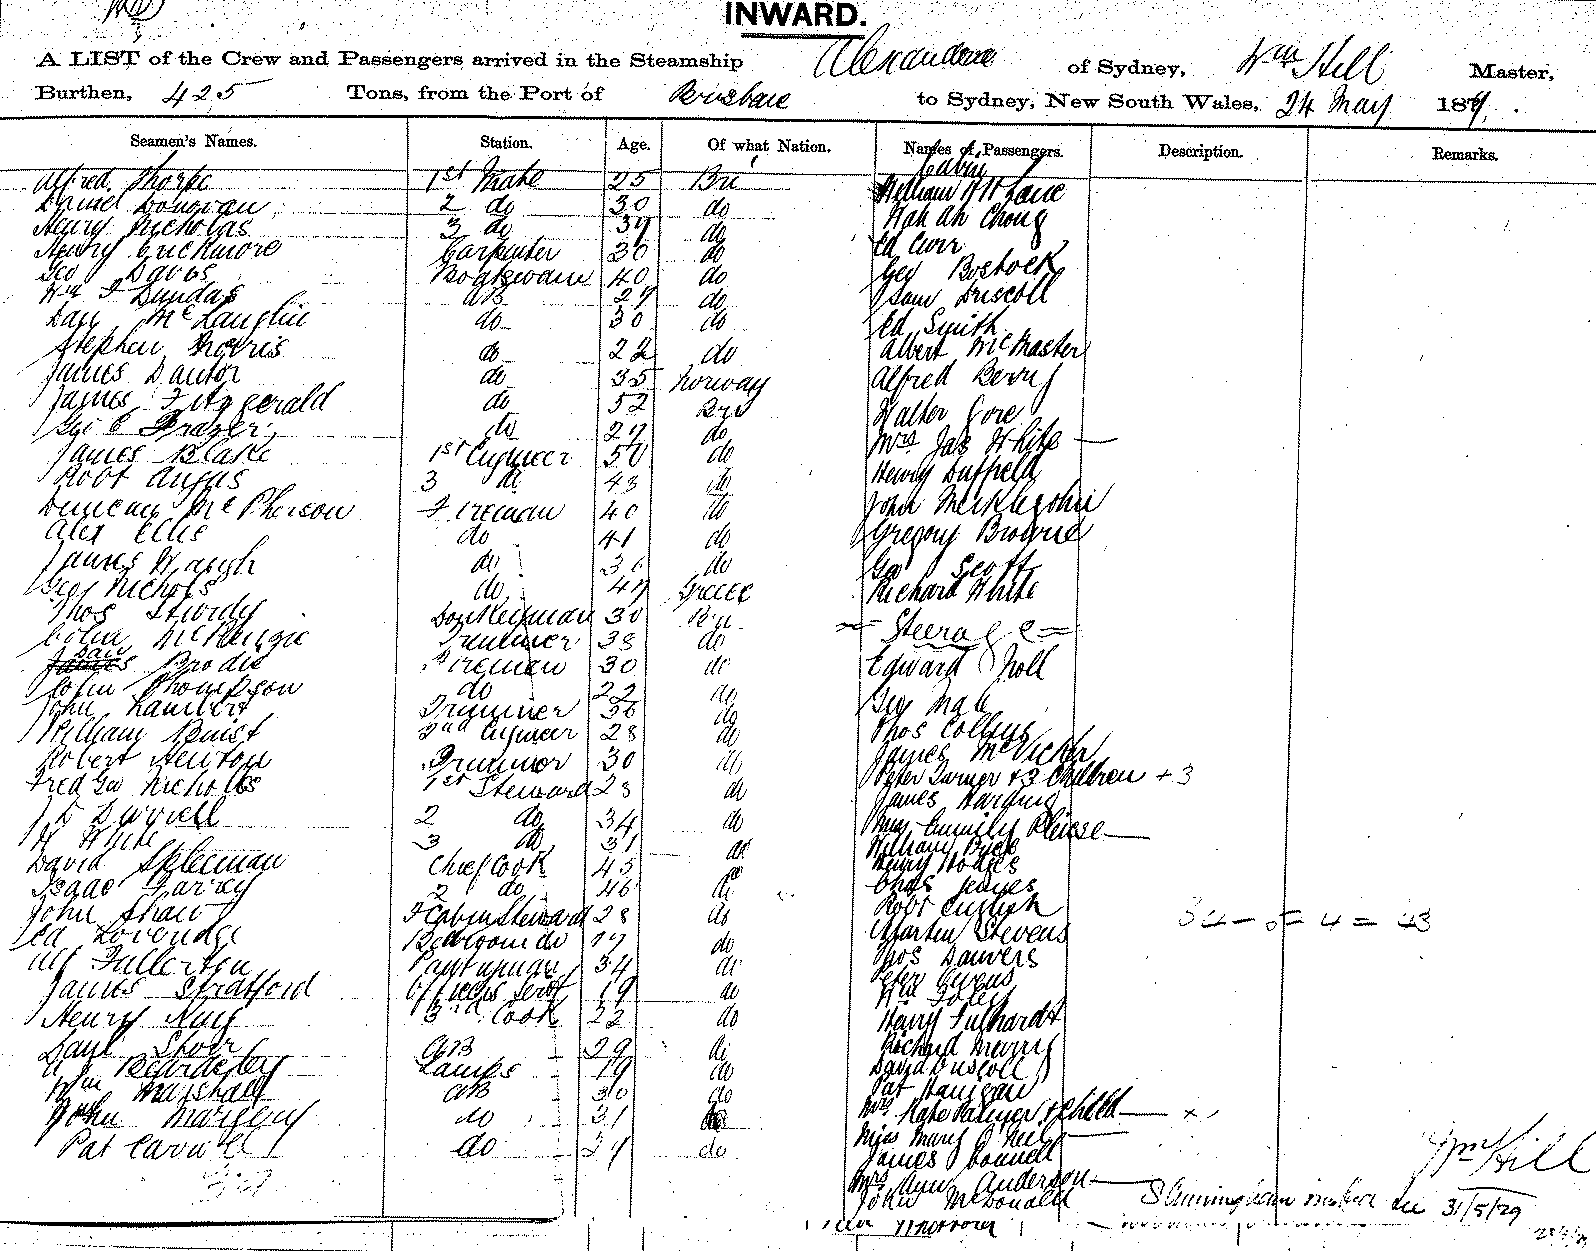 INWARD.
A LIST of the Crew and Passengers arrived in the Steamship Alexandra of Sydney, Wm Hill Master,
Burthen, 425 Tons, from the Port of Brisbane to Sydney, New South Wales, 24 May 187
Seamen's Names. Station. Age. Of what Nation. Names of Passengers. Description. Remarks.
Cabin
Alfred Thorpe 1st Mate 25 Bri William H Lane
Daniel Donovan 2 do 30 do Wah Ah Chong
Henry Nicholas 3 do do Ed Curr
Henry Crickmore Carpenter 30 do Geo Bostock
Geo Davis Boatswain 40 do Sam Driscoll
Wm Dundas AB 27 do Ed Smith
Dan McLauglin do 30 do Albert McMaster
Stephen Norris do 22 do Alfred Berry
James do 35 Norway Walter Gore
James Fitzgerald do 52 Bri Mrs Jas White
Geo C Frazer do 27 do Henry Duffield
James Blake 1st Engineer 50 do John Meiklejohn
Robt Angus 3 do 43 do Gregory Browne
Duncan McPherson Fireman 40 do Geo Scott
Alex Ellis do 41 do Richard White
James Waugh do 36 do
Geo Nichols do 47 Greece
Thos Sturdy Donkeyman 30 Bri = Steerage =
Colin McKenzie Trimmer 38 do Edward Noll
Dan Brodie Fireman 30 do Geo Male
John Thompson do 22 do Thos Collins
John Lambert Trimmer 36 do James McVicker
William Quist 2nd Engineer 28 do Peter Turner + 3 Children + 3
Robert Newton Trimmer 30 do James Harding
Fred Geo Nicholls 1st Steward 28 do Mrs Emily Please
J D Durrell 2 do 34 do William Buck
H White 3 do 31 do Henry Hodges
David Spleeman Chief Cook 45 do Chas Jeayes
Isaac Harvey 2 do 46 do Robt English
John Shaw F Cabin Steward 28 do Martin Stevens
Ed Loveridge Bedroom do do Thos Danvers
Alf Fullerton Pantryman 34 do Peter Owens
James Stratford Officers Servt 19 do Wm Foley
Henry King 3rd Cook 22 do Harry Fulhardt
Danl Shorr AB 29 do Richard Merry
Beardsley Lamps 19 do David Driscoll
Wm Marshall AB 30 do Pat Hanigan
John Margery do 31 do Mrs Kate Palmer + child x
Pat Carwell do do Miss Mary O Neil
James Connell
Mrs Ann Anderson
John McDonald
Morrow
34 - 5 = 4 = 43
Wm Hill
31/5/79